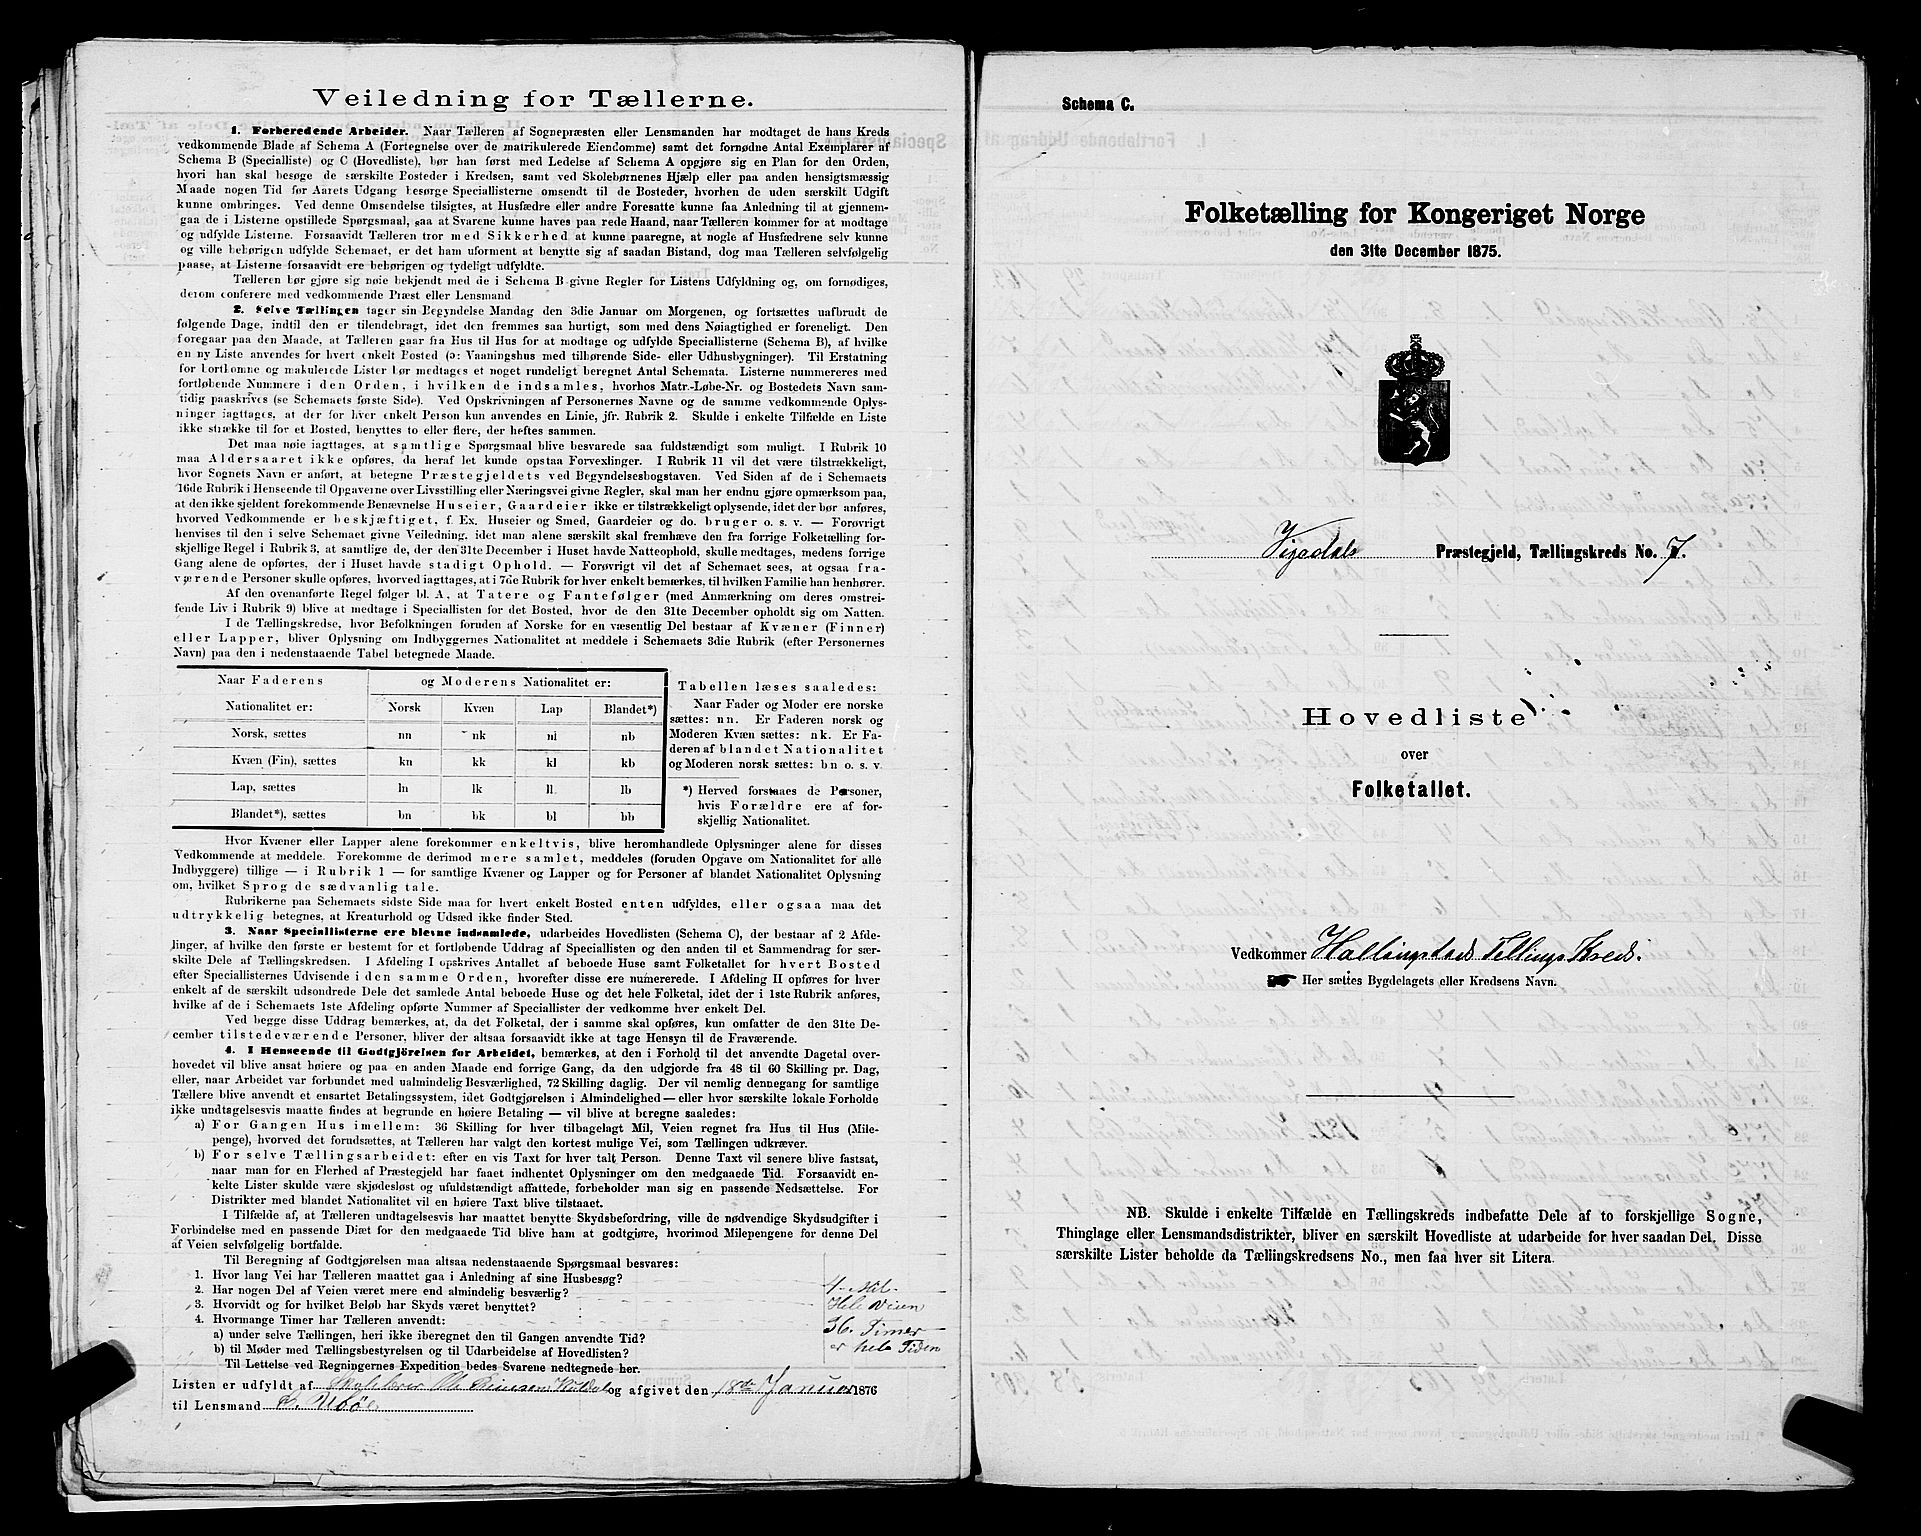 Veiledning for Tællerne.
1. Forberedende Arbeider. Naar Tælleren af Sognepræsten eller Lensmanden har modtaget de hans Kreds
vedkommende Blade af Schema A (Fortegnelse over de matrikulerede Eiendomme) samt det fornødne Antal Exemplarer af
Schema B (Specialliste) og C (Hovedliste), bør han først med Ledelse af Schema A opgjøre sig en Plan for den Orden,
hvori han skal besøge de særskilte Posteder i Kredsen, samt ved Skolebørnenes Hjælp eller paa anden hensigtsmæssig
Maade nogen Tid før Aarets Udgang besørge Speciallisterne omsendt til de Bosteder, hvorhen de uden særskilt Udgift
kunne ombringes. Ved denne Omsendelse tilsigtes, at Husfædre eller andre Foresatte kunne faa Anledning til at gjennem-
gaa de i Listerne opstillede Spørgsmaal, saa at Svarene kunne haves paa rede Haand, naar Tælleren kommer for at modtage
og udfylde Listerne. Forsaavidt Tælleren tror med Sikkerhed at kunne paaregne, at nogle af Husfædrene selv kunne
og ville behørigen udfylde Schemaet, er det ham uforment at benytte sig af saadan Bistand, dog maa Tælleren selvfølgelig
paase, at Listerne forsaavidt ere behørigen og tydeligt udfyldte.
Tælleren bør gjøre sig nøie bekjendt med de i Schema B givne Regler for Listens Udfyldning og, om fornødiges,
derom conferere med vedkommende Præst eller Lensmand
2. Selve Tællingen tager sin Begyndelse Mandag den 3die Januar om Morgenen, og fortsættes uafbrudt de
følgende Dage, indtil den er tilendebragt, idet den fremmes saa hurtigt, som med dens Nøiagtighed er foreneligt. Den
foregaar paa den Maade, at Tælleren gaar fra Hus til Hus for at modtage og udfylde Speciallisterne (Schema B), af hvilke
en ny Liste anvendes for hvert enkelt Bosted (ɔ: Vaaningshus med tilhørende Side- eller Udhusbygninger). Til Erstatning
for bortkomne og makulerede Lister bør medtages et noget rundeligt beregnet Antal Schemata. Listerne nummereres med
fortløbende Nummere i den Orden, i hvilken de indsamles, hvorhos Matr.-Løbe-Nr. og Bostedets Navn sam-
tidig paaskrives (se Schemaets første Side). Ved Opskrivningen af Personernes Navne og de samme vedkommende Oplys-
ninger iagttages, at der for hver enkelt Person kun anvendes en Linie, jfr. Rubrik 2. Skulde i enkelte Tilfælde en Liste
ikke strække til for et Bosted, benyttes to eller flere, der heftes sammen.
Det maa nøie iagttages, at samtlige Spørgsmaal blive besvarede saa fuldstændigt som muligt. I Rubrik 10
maa Aldersaaret ikke opføres, da heraf let kunde opstaa Forvexlinger. I Rubrik 11 vil det være tilstrækkeligt,
hvor Sognets Navn er anført, at betegne Præstegjeldets ved Begyndelsesbogstaven. Ved Siden af de i Schemaets
16de Rubrik i Henseende til Opgaverne over Livsstilling eller Næringsvei givne Regler, skal man her endnu gjøre opmærksom paa,
at den ikke sjeldent forekommende Benævnelse Huseier, Gaardeier ikke er tilstrækkeligt oplysende, idet der bør anføres,
hvorved Vedkommende er beskjæftiget, f. Ex. Huseier og Smed, Gaardeier og do. bruger o. s. v. — Forøvrigt
henvises til den i selve Schemaet givne Veiledning. idet man alene særskilt skal fremhæve den fra forrige Folketælling for-
skjellige Regel i Rubrik 3, at samtlige de, der den 31te December i Huset havde Natteophold, skulle medtages, medens forrige
Gang alene de opførtes, der i Huset havde stadigt Ophold. — Forøvrigt vil det af Schemaet sees, at ogsaa fra-
værende Personer skulle opføres, hvorved iagttages, at i 7de Rubrik for hver enkelt bemærkes, til hvilken Familie han henhører.
Af den ovenanførte Regel følger bl. A., at Tatere og Fantefølger (med Anmærkning om deres omstrei-
fende Liv i Rubrik 9) blive at medtage i Speciallisten for det Bosted, hvor de den 31te December opholdt sig om Natten.
I de Tællingskredse, hvor Befolkningen foruden af Norske for en væsentlig Del bestaar af Kvæner (Finner)
eller Lapper, bliver Oplysning om Indbyggernes Nationalitet at meddele i Schemaets 3die Rubrik (efter Personernes
Navn) paa den i nedenstaaende Tabel betegnede Maade.
Naar Faderens og Moderens Nationalitet er:
Nationalitet er: Norsk Kvæn Lap Blandet*)
Norsk, sættes nn nk nl nb
Kvæn (Fin), sættes kn kk kl kb
Lap, sættes ln lk ll lb
Blandet*), sættes bn bk bl bb
Tabellen læses saaledes:
Naar Fader og Moder ere norske
sættes: nn. Er Faderen norsk og
Moderen Kvæn sættes: nk. Er Fa-
deren af blandet Nationalitet
og Moderen norsk sættes: bn o. s. v.
*) Herved forstaaes de Personer,
hvis Forældre ere af for-
skjellig Nationalitet.
Hvor Kvæner eller Lapper alene forekommer enkeltvis, blive heromhandlede Oplysninger alene for disses
Vedkommende at meddele. Forekomme de derimod mere samlet, meddeles (foruden Opgave om Nationalitet for alle
Indbyggere) tillige — i Rubrik 1 — for samtlige Kvæner og Lapper og for Personer af blandet Nationalitet Oplysning
om, hvilket Sprog de sædvanlig tale.
Rubrikerne paa Schemaets sidste Side maa for hvert enkelt Bosted enten udfyldes, eller ogsaa maa det
udtrykkelig betegnes, at Kreaturhold og Udsæd ikke finder Sted.
3. Naar Speciallisterne ere blevne indsamlede, udarbeides Hovedlisten (Schema C), der bestaar af 2 Afde-
linger, af hvilke den første er bestemt for et fortløbende Uddrag af Speciallisten og den anden til et Sammendrag for sær-
skilte Dele af Tællingskredsen. I Afdeling I opskrives Antallet af beboede Huse samt Folketallet for hvert Bosted
efter Speciallisternes Udvisende i den samme Orden, hvorefter disse ere numererede. I Afdeling II opføres for hver
enkelt af de særskilt udsondrede Dele det samlede Antal beboede Huse og det hele Folketal, idet der i 1ste Rubrik anføres,
hvilke af de i Schemaets 1ste Afdeling opførte Nummer af Speciallister der vedkomme hver enkelt Del.
Ved begge disse Uddrag bemærkes, at, da det Folketal, der i samme skal opføres, kun omfatter de den 31te De-
cember tilstedeværende Personer, bliver der altsaa forsaavidt ikke at tage Hensyn til de Fraværende.
4. I Henseende til Godtgjörelsen for Arbeidet, bemærkes, at den i Forhold til det anvendte Dagetal over-
hovedet vil blive ansat høiere og paa en anden Maade end forrige Gang, da den udgjorde fra 48 til 60 Skilling pr. Dag,
eller, naar Arbeidet var forbundet med ualmindelig Besværlighed, 72 Skilling daglig. Der vil nemlig dennegang for samtlige
Tællere blive anvendt et ensartet Betalingssystem, idet Godtgjørelsen i Almindelighed — eller hvor særskilte lokale Forholde
ikke undtagelsesvis maatte findes at begrunde en høiere Betaling — vil blive at beregne saaledes:
a) For Gangen Hus imellem: 36 Skilling for hver tilbagelagt Mil, Veien regnet fra Hus til Hus (Mile-
penge), hvorved det forudsættes, at Tælleren har valgt den kortest mulige Vei, som Tællingen udkræver.
b) For selve Tællingsarbeidet: efter en vis Taxt for hver talt Person. Denne Taxt vil senere blive fastsat,
naar man for en Flerhed af Præstegjeld har faaet indhentet Oplysninger om den medgaaede Tid. Forsaavidt en-
kelte Lister skulde være skjødesløst og ufuldstændigt affattede, forbeholder man sig en passende Nedsættelse. For
Distrikter med blandet Nationalitet vil en høiere Taxt blive tilstaaet.
I Tilfælde af, at Tælleren undtagelsesvis har maattet benytte Skydsbefordring, ville de nødvendige Skydsudgifter i
Forbindelse med en passende Diæt for den medgaaede Tid blive ham at godtgjøre, hvorimod Milepengene for denne Del
af Veien selvfølgelig bortfalde.
Til Beregning af Godtgjörelsen maa altsaa nedenstaaende Spørgsmaal besvares:
1. Hvor lang Vei har Tælleren maattet gaa i Anledning af sine Husbesøg? 4 Mil.
2. Har nogen Del af Veien været mere end almindelig besværlig? Hele Veien
3. Hvorvidt og for hvilket Beløb har Skyds været benyttet?
4. Hvormange Timer har Tælleren anvendt:
a) under selve Tællingen, heri ikke iberegnet den til Gangen anvendte Tid? 36. Timer
b) til Møder med Tællingsbestyrelsen og til Udarbeidelse af Hovedlisten? er hele Tiden
Til Lettelse ved Regningernes Expedition bedes Svarene nedtegnede her.
Listen er udfyldt af Ole og afgivet den 18de Januar 1876
til Lensmand
Schema C.
Folketælling for Kongeriget Norge
den 31te December 1875.
Vigedals Præstegjeld, Tællingskreds No. 7.
Hovedliste
over
Folketallet.
Vedkommer Hallingstad Tellings Kreds.
Her sættes Bygdelagets eller Kredsens Navn.
NB. Skulde i enkelte Tilfælde en Tællingskreds indbefatte Dele af to forskjellige Sogne,
Thinglage eller Lensmandsdistrikter, bliver en særskilt Hovedliste at udarbeide for hver saadan Del. Disse
særskilte Lister beholde da Tællingskredsens No., men faa hver sit Litera.